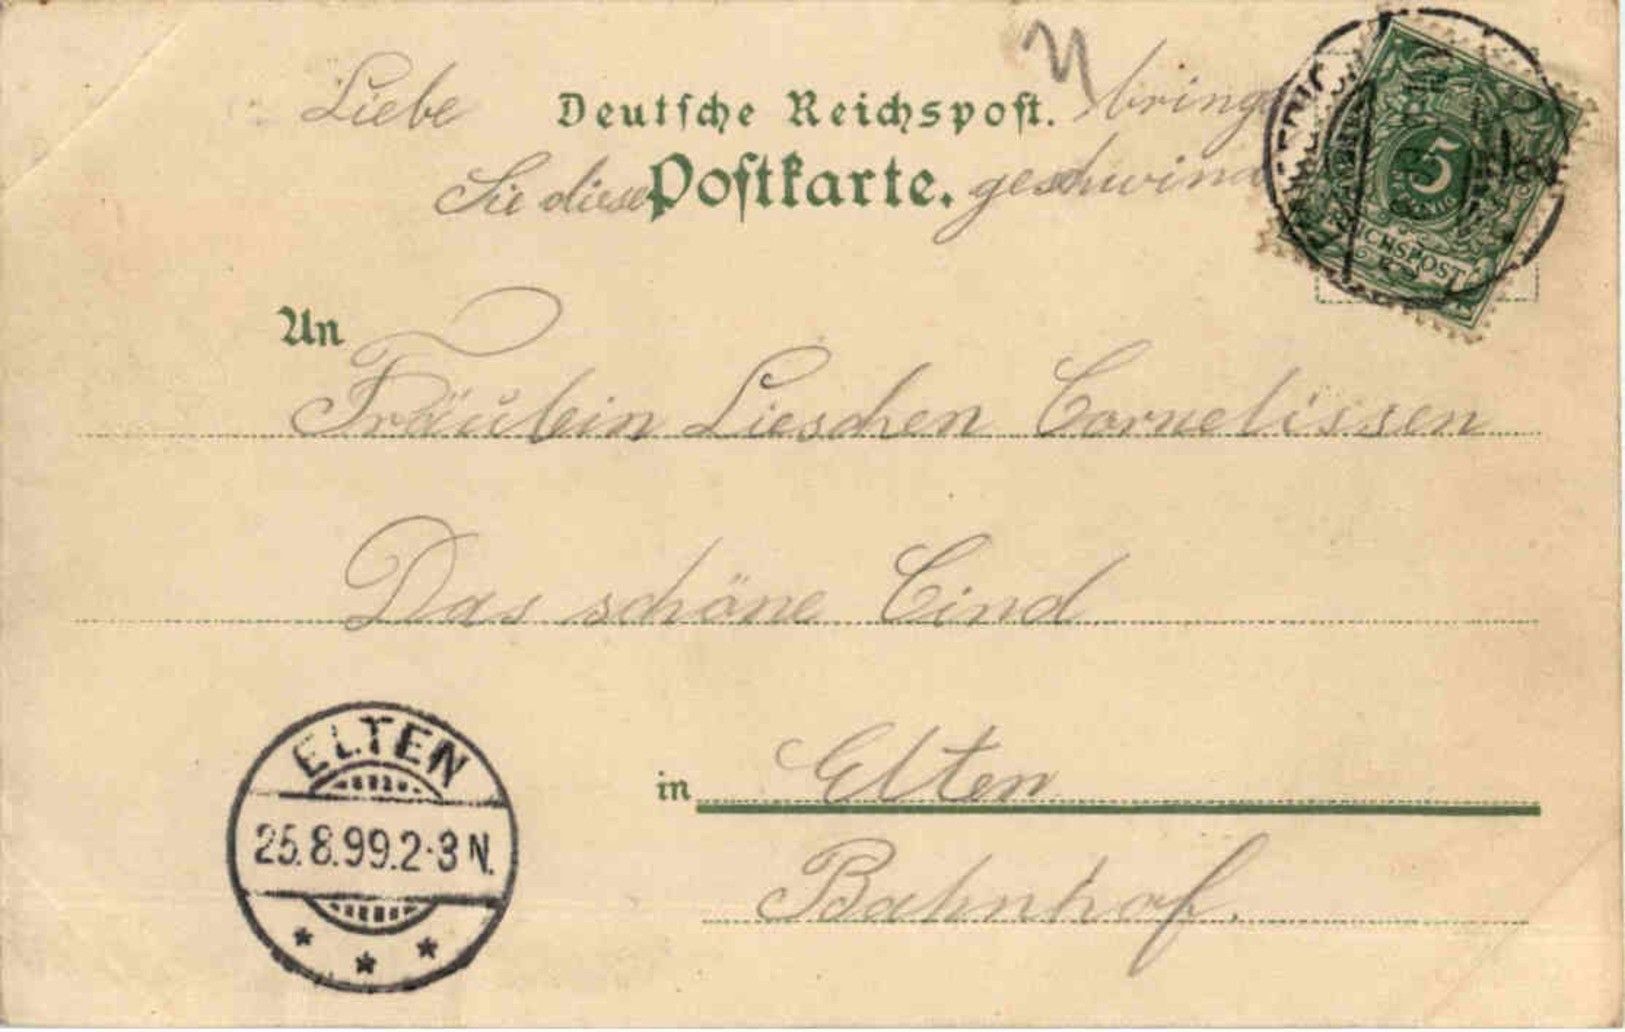 Liebe Deutsche Reichspost. bringe
Sie diese Postkarte. geschwind
5
REICHSPOST
An
Fräulein Lieschen Cornelissen
Das schöne Cind
in Elten
Bahnhof.
ELTEN
25.8.99.2-3 N.